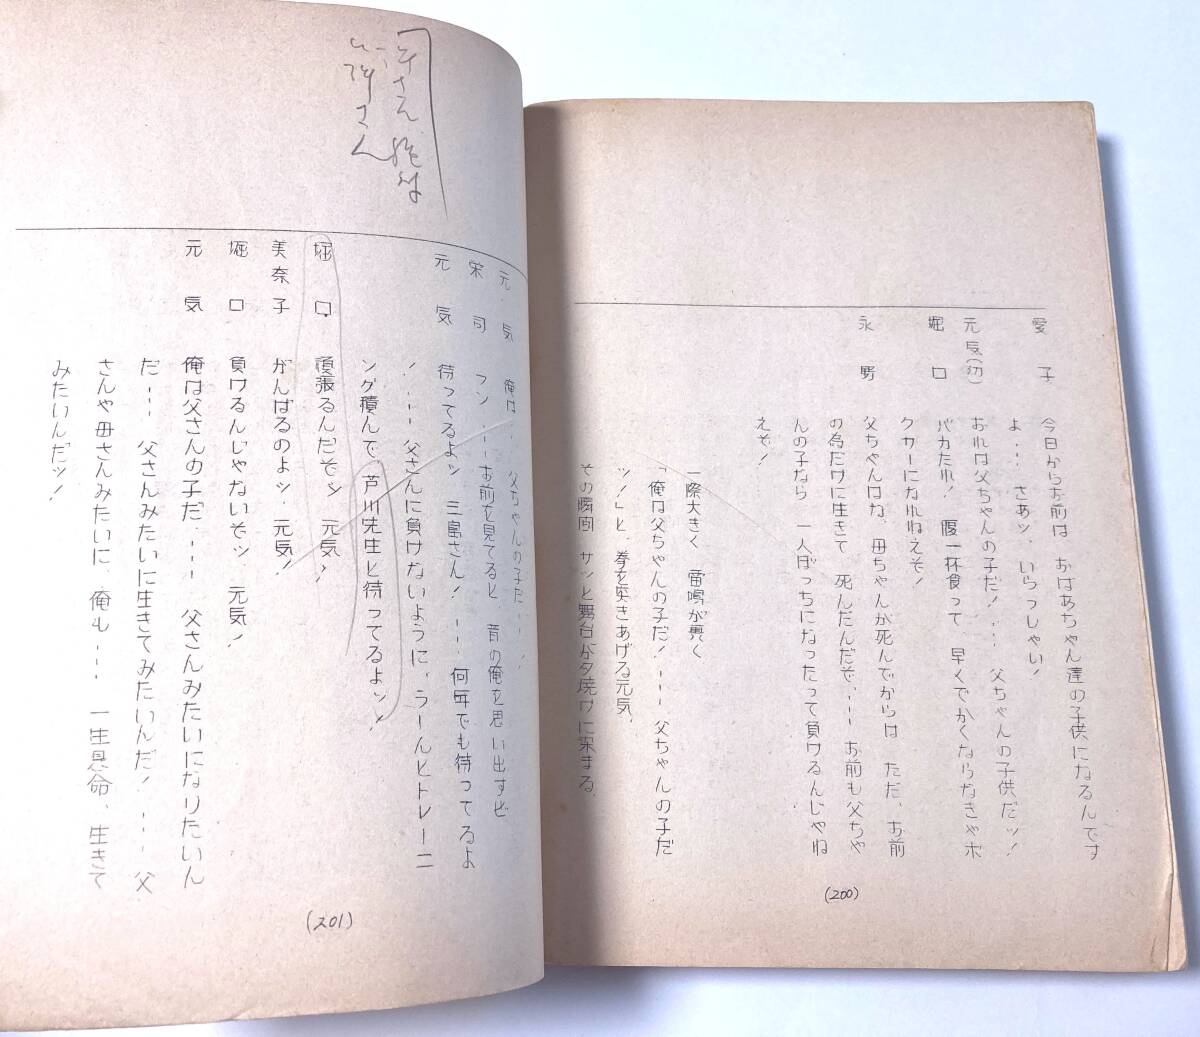 愛子　今日からお前は、おばあちゃん達の子供になるんです
よ…。さあッ、いらっしゃい！
元気(幼)　おれは父ちゃんの子だ！…。父ちゃんの子供だッ！
堀口　バカたれ！腹一杯食って、早くでかくならなきゃボ
クサーになれねえぞ！
永男　父ちゃんはな、母ちゃんが死んでからは、ただ、お前
の為だけに生きて、死んだんだぞ…。お前も父ちゃ
んの子なら、一人ぼっちになったって負けるんじゃね
えぞ！
一際大きく、雷鳴が轟く
「俺は父ちゃんの子だ！…。父ちゃんの子だ
ッ！」と、拳を突きあげる元気。
その瞬間、サッと舞台が夕焼けに染まる。
(200)
元気　俺は…父ちゃんの子だ…！
フン…お前を見てると、昔の俺を思い出すど
元気　待ってるよッ、三島さん！…何年でも待ってるよ
！…父さんに負けないように、うーんとトレーニ
ング積んで、芦川先生と待ってるよッ！
堀口　頑張るんだぞッ、元気！
美奈子　がんばるのよッ、元気！
堀口　負けるんじゃないぞッ、元気！
元気　俺は父さんの子だ…。父さんみたいになりたいん
だ…。父さんみたいに生きてみたいんだ！…。父
さんや母さんみたいに、俺も…。一生懸命、生きて
みたいんだッ！
(201)